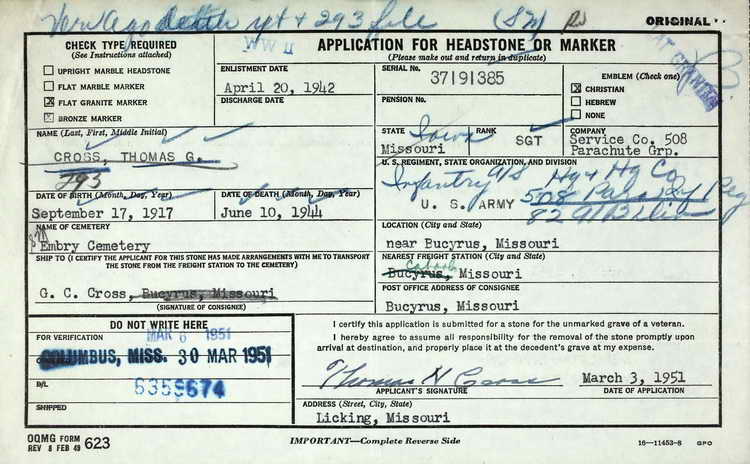 Verify death rpt & 293 file (SN)
ORIGINAL
CHECK TYPE REQUIRED
(See Instructions attached)
UPRIGHT MARBLE HEADSTONE
FLAT MARBLE MARKER
FLAT GRANITE MARKER
BRONZE MARKER
WW II
APPLICATION FOR HEADSTONE OR MARKER
(Please make out and return in duplicate)
ENLISTMENT DATE
April 20, 1942
DISCHARGE DATE
SERIAL No.
37191385
PENSION No.
EMBLEM (Check one)
CHRISTIAN
HEBREW
NONE
NAME (Last, First, Middle Initial)
CROSS, THOMAS G.
293
STATE
Iowa
Missouri
RANK
SGT
COMPANY
Service Co. 508
Parachute Grp.
U. S. REGIMENT, STATE ORGANIZATION, AND DIVISION
Infantry Hq & Hq Co
U. S. ARMY
508
DATE OF BIRTH (Month, Day, Year)
September 17, 1917
DATE OF DEATH (Month, Day, Year)
June 10, 1944
NAME OF CEMETERY
Embry Cemetery
LOCATION (City and State)
near Bucyrus, Missouri
SHIP TO (I CERTIFY THE APPLICANT FOR THIS STONE HAS MADE ARRANGEMENTS WITH ME TO TRANSPORT
THE STONE FROM THE FREIGHT STATION TO THE CEMETERY)
G. C. Cross, Bucyrus, Missouri
(SIGNATURE OF CONSIGNEE)
NEAREST FREIGHT STATION (City and State)
Cabool
Bucyrus, Missouri
POST OFFICE ADDRESS OF CONSIGNEE
Bucyrus, Missouri
DO NOT WRITE HERE
FOR VERIFICATION
MAR 6 1951
COLUMBUS, MISS. 30 MAR 1951
B/L
SHIPPED
I certify this application is submitted for a stone for the unmarked grave of a veteran.
I hereby agree to assume all responsibility for the removal of the stone promptly upon
arrival at destination, and properly place it at the decedent's grave at my expense.
Thomas H Cross
March 3, 1951
APPLICANT'S SIGNATURE
DATE OF APPLICATION
ADDRESS (Street, City, State)
Licking, Missouri
OQMG FORM
REV 8 FEB 49 623
IMPORTANT—Complete Reverse Side
16—11453-8 GPO